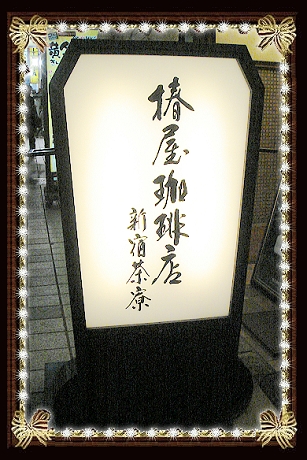 椿屋珈琲店
新宿茶寮